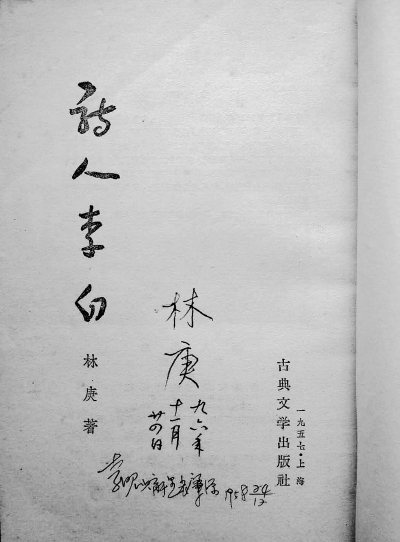 诗人李白
林庚著
林庚
九六年
十一月
廿四日
古典文学出版社
一九五七·上海
1958 24/12